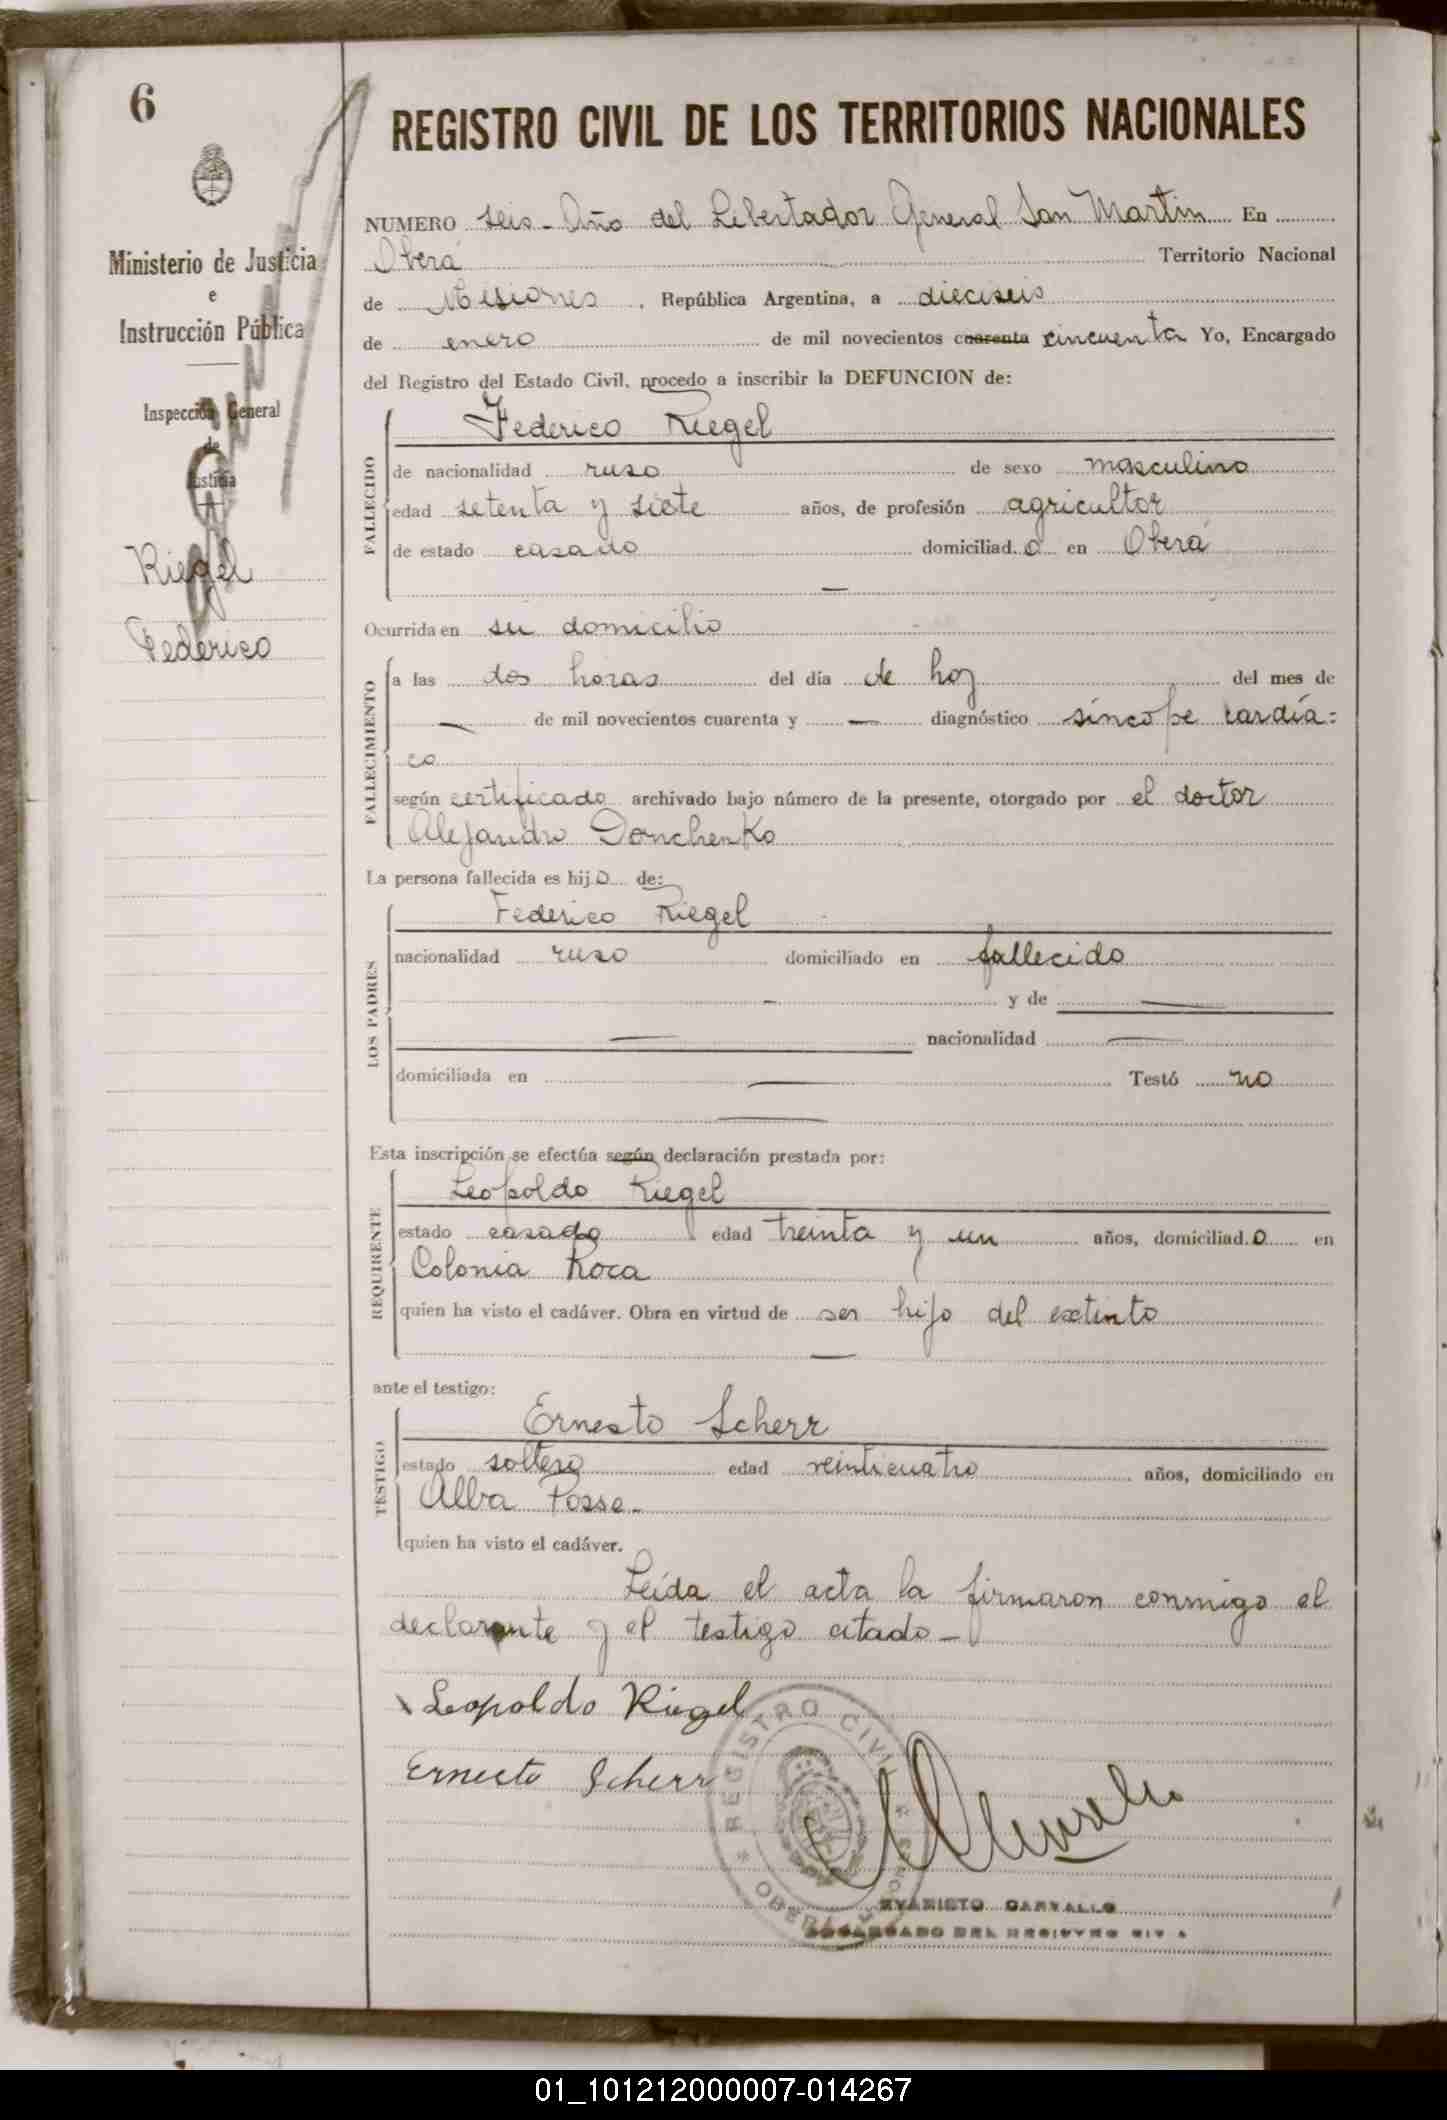 6
REGISTRO CIVIL DE LOS TERRITORIOS NACIONALES
Ministerio de Justicia
e
Instrucción Pública
Inspección General
de
Justicia
Riegel
Federico
NUMERO seis - Año del Libertador General San Martin En
Oberá Territorio Nacional
de Misiones, República Argentina, a dieciseis
de enero de mil novecientos cuarenta cincuenta Yo, Encargado
del Registro del Estado Civil, procedo a inscribir la DEFUNCION de:
FALLECIDO
Federico Riegel
de nacionalidad ruso de sexo masculino
edad setenta y siete años, de profesión agricultor
de estado casado domiciliad o en Oberá
—
Ocurrida en su domicilio
FALLECIMIENTO
a las dos horas del día de hoy del mes de
— de mil novecientos cuarenta y — diagnóstico síncope cardía=
co
según certificado archivado bajo número de la presente, otorgado por el doctor
Alejandro Donchenko
La persona fallecida es hij o de:
LOS PADRES
Federico Riegel
nacionalidad ruso domiciliado en fallecido
- y de —
— nacionalidad —
domiciliada en — Testó no
—
Esta inscripción se efectúa según declaración prestada por:
REQUIRENTE
Leopoldo Riegel
estado casado edad treinta y un años, domiciliad o en
Colonia Roca
quien ha visto el cadáver. Obra en virtud de ser hijo del extinto
—
ante el testigo:
TESTIGO
Ernesto Scherr
estado soltero edad veinticuatro años, domiciliado en
Alba Posse -
quien ha visto el cadáver.
Leída el acta la firmaron conmigo el
declarante y el testigo citado -
Leopoldo Riegel
Ernesto Scherr
REGISTRO CIVIL
OBERÁ
EVARISTO CARVALLO
ENCARGADO DEL REGISTRO CIVIL
01_101212000007-014267